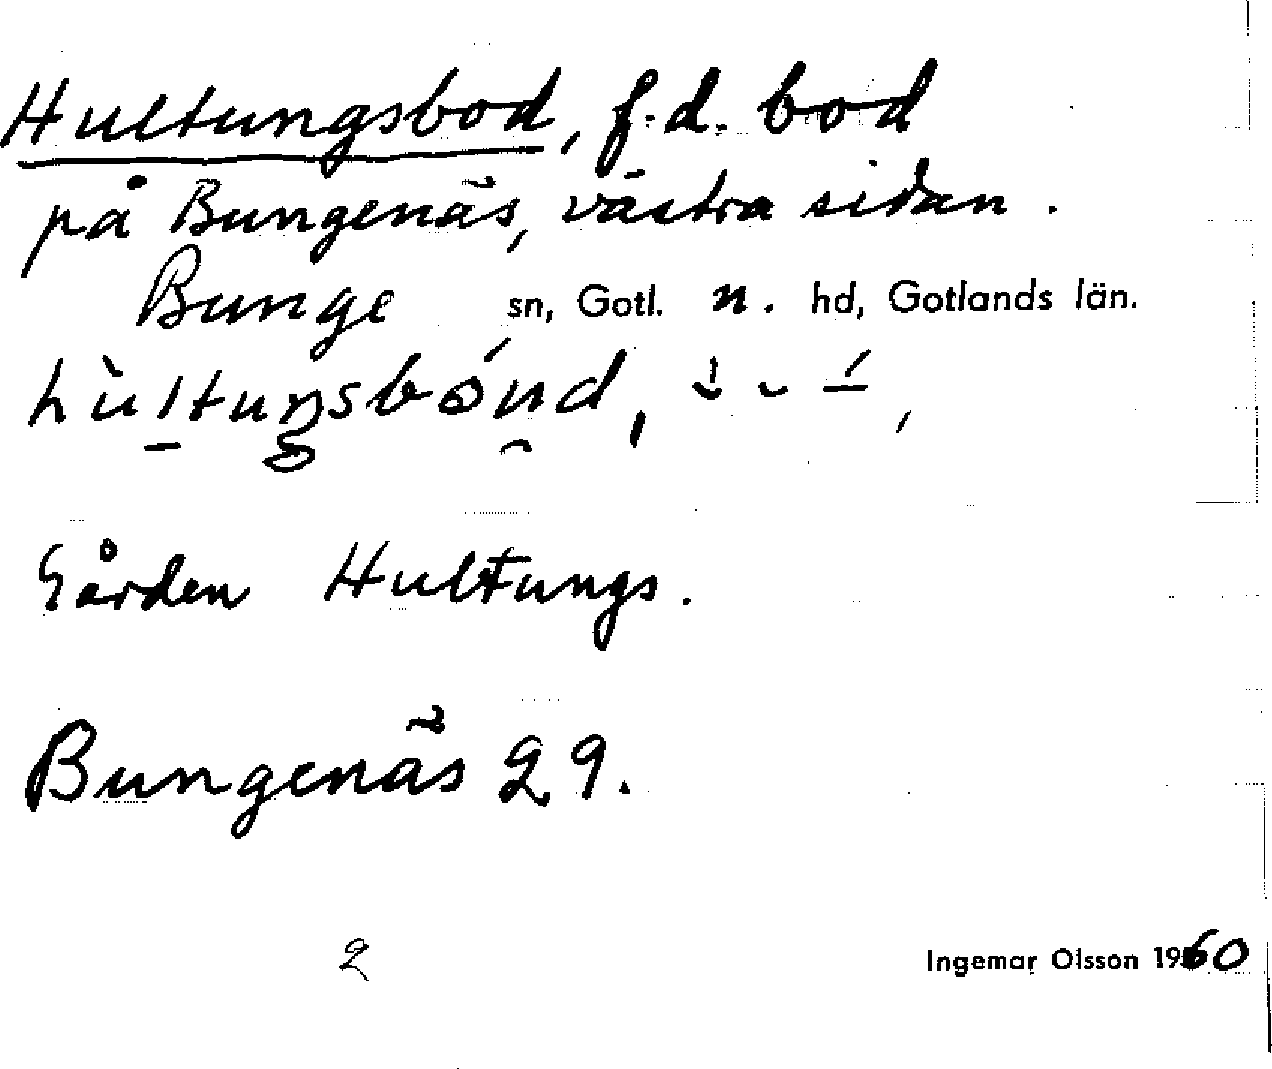 Hultungsbod, f.d. bod
på Bungenäs, västra sidan.
Bunge sn, Gotl. n. hd, Gotlands län.
Gården Hultungs.
Bungenäs 29.
2
Ingemar Olsson 1960